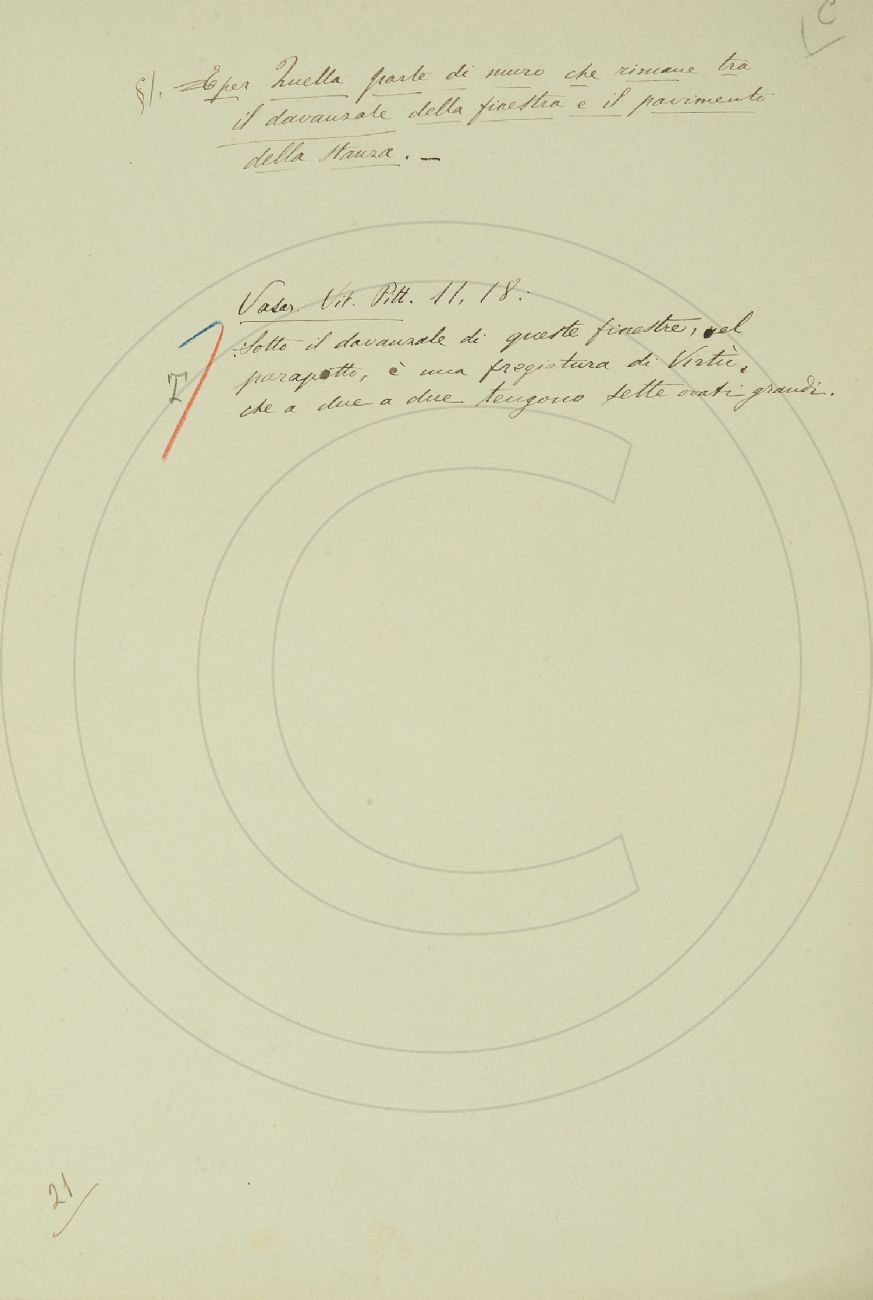 C
§1. E per Quella parte di muro che rimane tra
il davanzale della finestra e il pavimento
della stanza. —
Vasar. Vit. Pitt. 11, 18:
Sotto il davanzale di queste finestre, nel
parapetto, è una fregiatura di Virtù,
che a due a due tengono sette ovati grandi.
21